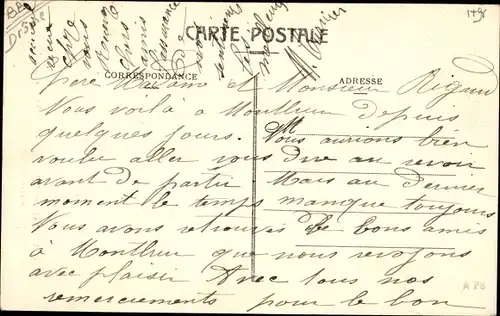 CARTE POSTALE
CORRESPONDANCE
ADRESSE
Chère Madame et Monsieur Rigaud
Nous voilà à Montluu depuis
quelques jours. Nous aurions bien
voulu aller vous dire au revoir
avant de partir Mais au dernier
moment le temps manque toujours
Nous avons retrouvés de bons amis
à Montluu que nous revoyons
avec plaisir Avec tous nos
remerciements pour le bon
accueil
chers amis
l'assurance
sentiments
les meilleurs